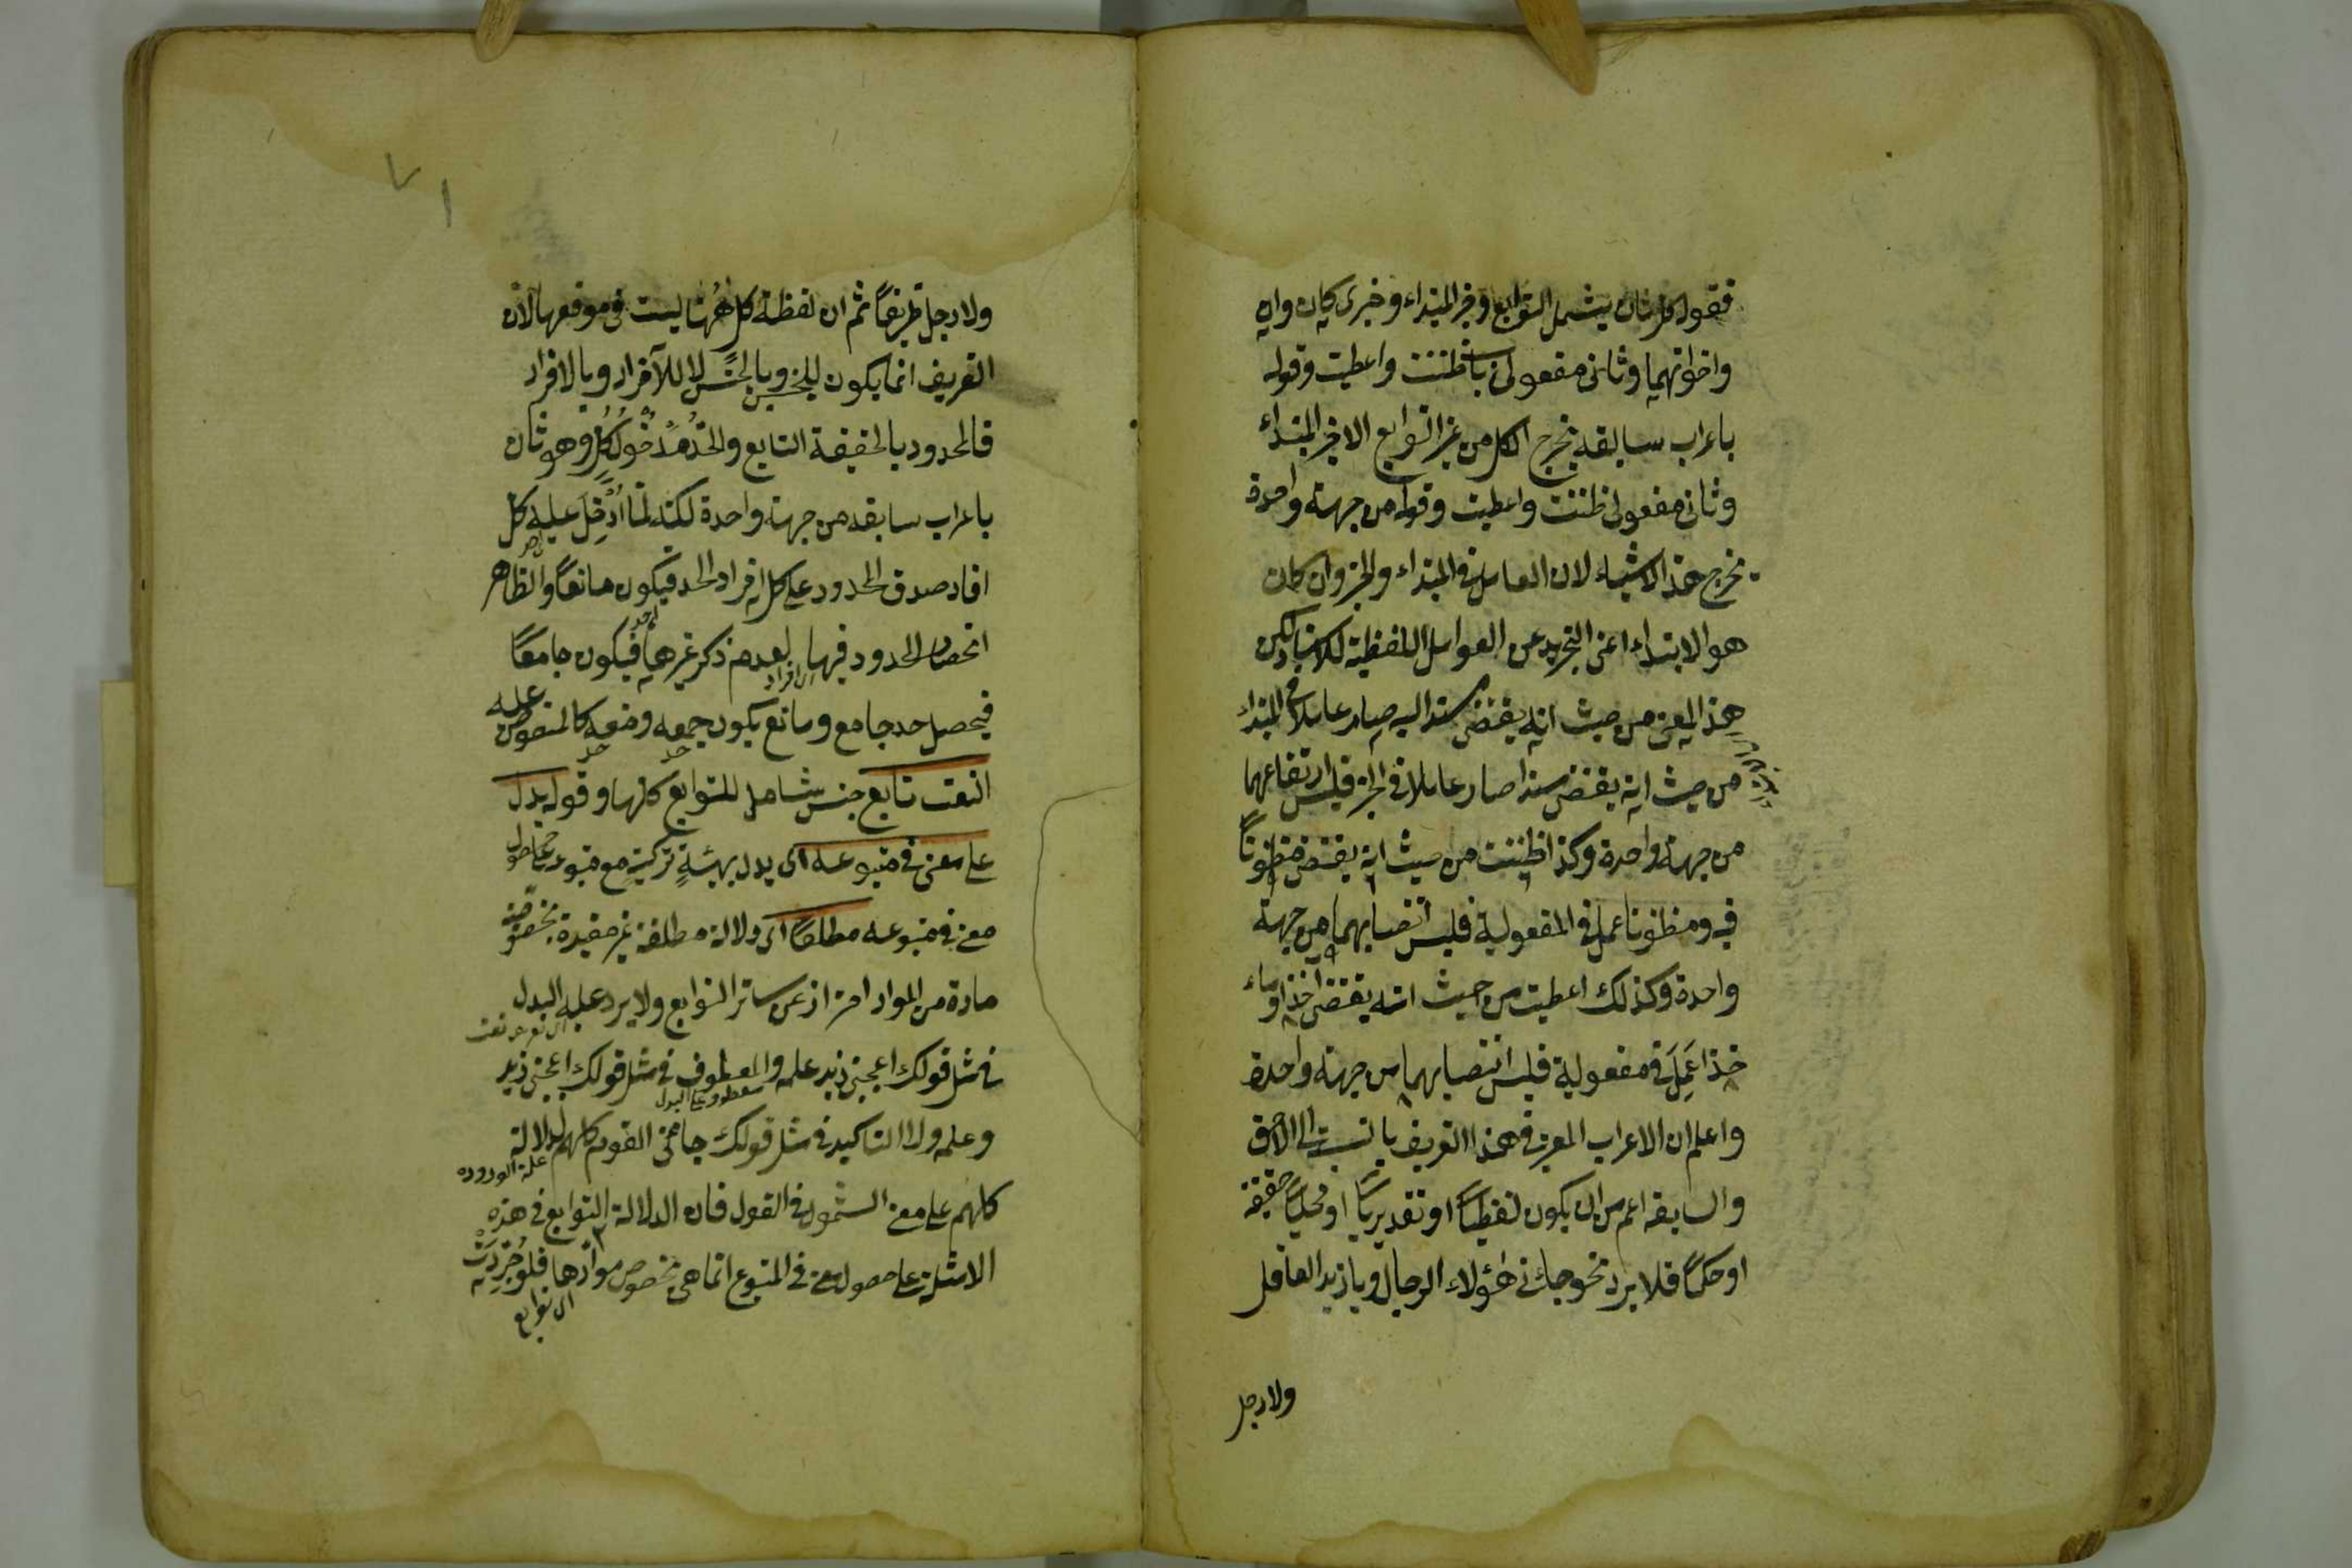 فقوله كل ثان يشمل التوابع وخبر المبتداء وخبرى كان وان
واخواتهما وثانى مفعولى باب ظننت واعطيت وقوله
باعراب سابقه يخرج الكل من غير التوابع الا خبر المبتداء
وثانى مفعولى ظننت واعطيت وقوله من جهة واحدة
يخرج هذه الاشياء لان العامل فى المبتداء والخبر وان كان
هو الابتداء اعنى التجريد عن العوامل اللفظية للاسناد لكن
هذا المعنى من حيث انه يقتضى مسندا اليه صار عاملا فى المبتداء
من حيث انه يقتضى مسندا صار عاملا فى الخبر فليس ارتفاعهما
من جهة واحدة وكذا ظننت من حيث انه يقتضى مظنونا
فيه ومظنونا عمل فى المفعولية فليس انتصابهما من جهة
واحدة وكذلك اعطيت من حيث انه يقتضى آخذا وماء
خذا عَمِلَ فى مفعوليه فليس انتصابهما من جهة واحدة
واعلم ان الاعراب المعتبر فى هذا التعريف بالنسبة الى اللاحق
والسابق اعم من ان يكون لفظيًا او تقديريًا او محليًا حقيقة
او حكمًا فلا يرد نحو جاءنى هؤلاء الرجال ويا زيد العاقل
ولا رجل
٧١
ولا رجل ظريفًا ثم ان لفظة كل ههنا ليست فى موقعها لان
التعريف انما يكون للجنس وبالجنس لا للافراد وبالافراد
فالمحدود بالحقيقة التابع والحد مدخول كل وهو ثان
باعراب سابقه من جهة واحدة لكنه لما اُدْخِلَ عليه كل
افاد صدق المحدود على كل افراد الحد فيكون مانعًا والظاهر
انحصار المحدود فيها لعدم ذكر غيرها فيكون جامعًا
اى افراد
فيحصل حد جامع ومانع يكون جمعه ومنعه كالمنصوص عليه
حد حد
النعت تابع جنس شامل للتوابع كلها وقوله يدل
على معنى فى متبوعه اى يدل بهيئة تركيبه مع متبوعه على حصول
معنى فى متبوعه مطلقًا اى دلالة مطلقة غير مقيدة بخصوصية
مادة من المواد احتراز عن سائر التوابع ولا يرد عليه البدل
فى مثل قولك اعجبنى زيد علمه والمعطوف فى مثل قولك اعجبنى زيد
معطوف على البدل
وعلمه ولا التاكيد فى مثل قولك جاءنى القوم كلهم لدلالة
علة الورود
كلهم على معنى الشمول فى القول فان الدلالة التوابع فى هذه
الامثلة على حصول معنى فى المتبوع انما هى بخصوص موادها فلو جُرّدَتْ
اى توابع